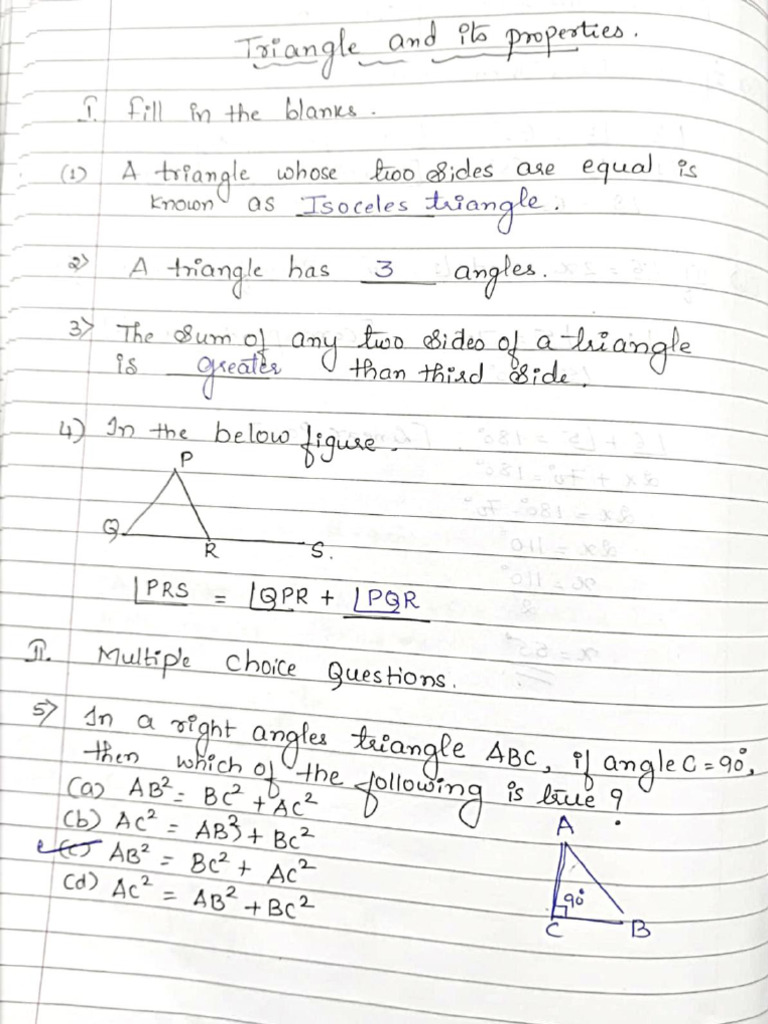 Triangle and its properties.
I. fill in the blanks.
(1) A triangle whose two sides are equal is
known as Isoceles triangle.
2) A triangle has 3 angles.
3) The sum of any two sides of a triangle
is greater than third side.
4) In the below figure.
P
Q
R
S.
∠PRS = ∠QPR + ∠PQR
II. Multiple Choice Questions.
5) In a right angles triangle ABC, if angle C = 90°,
then which of the following is true ?
(a) AB² = BC² + AC²
(b) AC² = AB² + BC²
(c) AB² = BC² + AC²
(d) AC² = AB² + BC²
A
90°
C
B